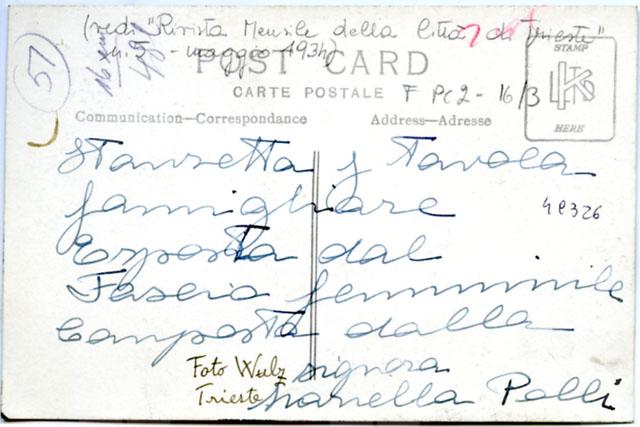 (vedi "Rivista Mensile della Città di Trieste"
n. 5 - maggio 1934)
57
POST CARD
CARTE POSTALE
F PC2 - 16/3
STAMP
HERE
Communication—Correspondance
Address—Adresse
Stanzetta y Tavola
famigliare
49326
Esposta dal
Fascio femminile
Composta dalla
signora
Foto Wulz
Trieste
Marella Polli